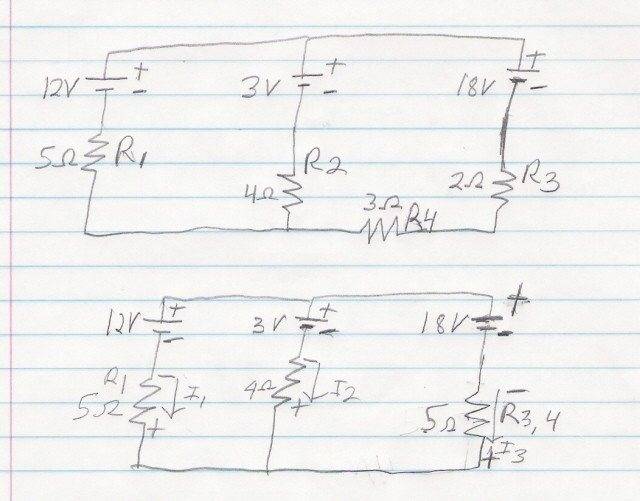 12V + - 3V + - 18V + -
5Ω R1 4Ω R2 2Ω R3
3Ω R4
12V + - 3V + - 18V + -
R1 5Ω + I1 - 4Ω + I2 5Ω - R3,4
+ I3